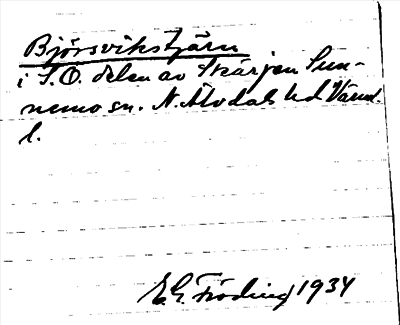 Björsvikstjärn
i S.Ö. delen av Skärjen Sun-
nemo sn. N. Älvdals hd Värml.
l.
E.G. Fröding 1934